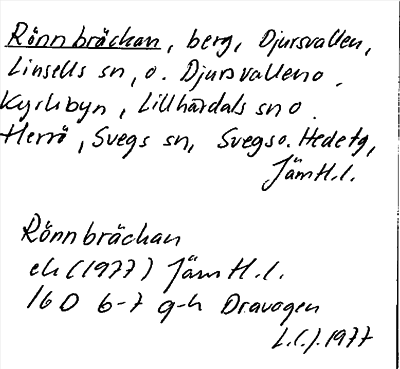 Rönnbräckan, berg, Djursvallen,
Linsells sn, o. Djursvallen o.
Kyrkbyn, Lillhärdals sn o.
Herrö, Svegs sn, Svegs o. Hede tg,
Jämtl.l.
Rönnbräckan
ek (1977) Jämtl.l.
16 D 6-7 g-h Dravagen
L.C.J. 1977